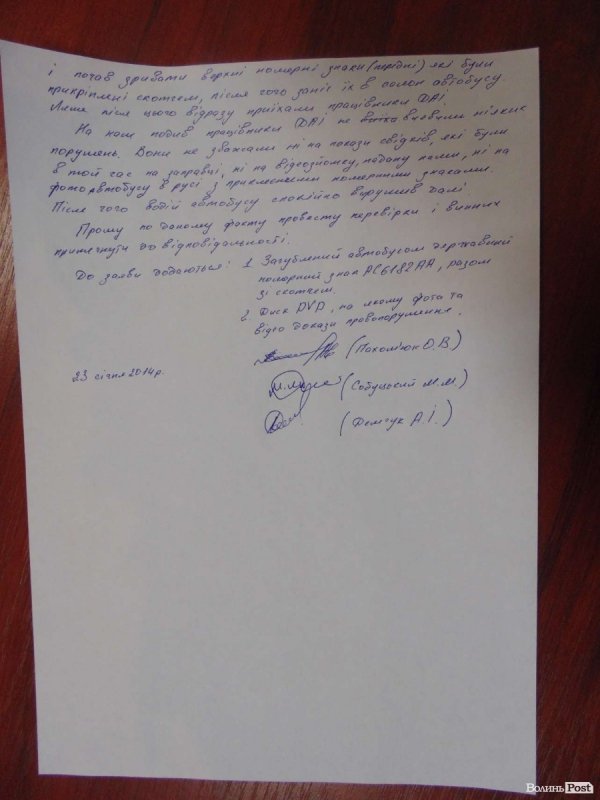 і почав зривати верхні номерні знаки (передні) які були
прикріплені скотчем, після чого заніс їх в салон автобусу
Лише після цього відразу приїхали працівники ДАІ.
На наш подив працівники ДАІ не вчинили ніяких
порушень. Вони не зважали ні на покази свідків, які були
в той час на заправці, ні на відеозйомку, надану нами, ні на
фото автобусу в русі з приклеєними номерними знаками.
Після чого водій автобусу спокійно вирушив далі.
Прошу по даному факту провести перевірки і винних
притягнути до відповідальності.
До заяви додаються: 1. Загублений автобусом державний
номерний знак АС6182АА, разом
зі скотчем.
2. Диск DVD, на якому фото та
відео докази правопорушення.
(Пахолюк О.В)
23 січня 2014р.
(Собуцький М.М.)
(Демчук А.І.)
ВолиньPost